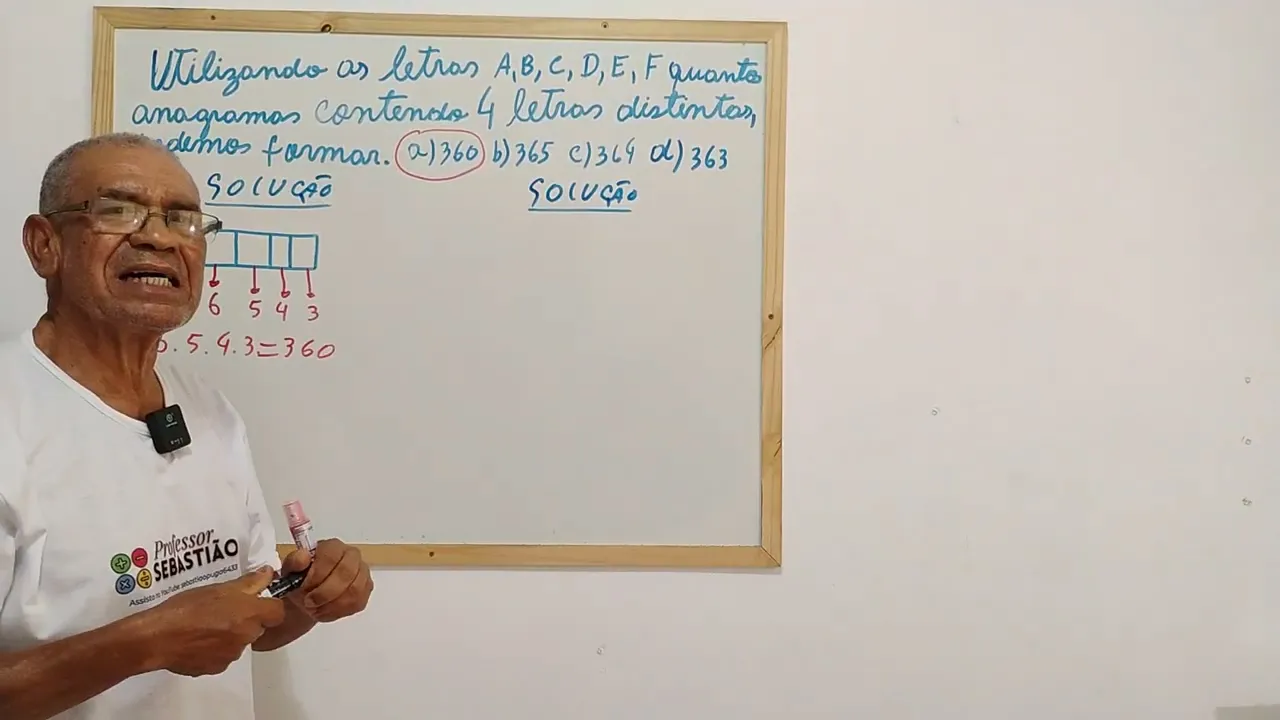 Utilizando as letras A, B, C, D, E, F quantos
anagramas contendo 4 letras distintas,
formar. a) 360 b) 365 c) 364 d) 363
SOLUÇÃO
SOLUÇÃO
6 5 4 3
. 5 . 4 . 3 = 360
Professor
SEBASTIÃO